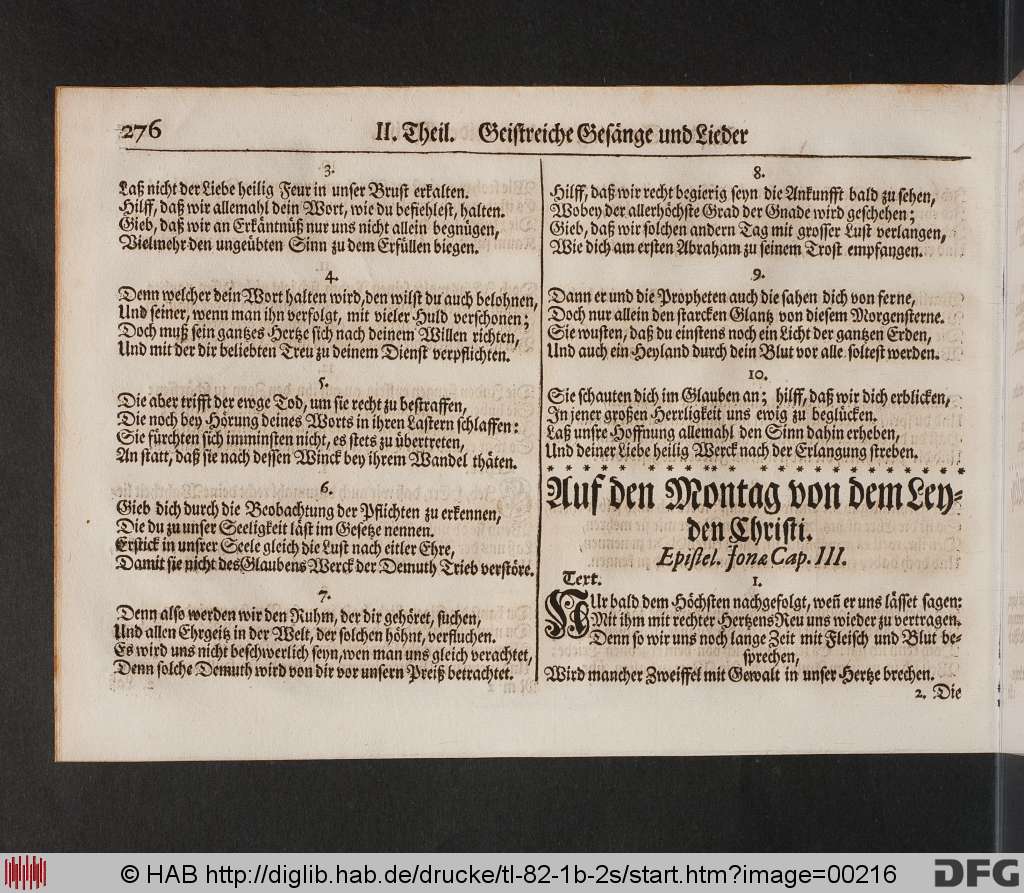 276 II. Theil. Geistreiche Gesänge und Lieder
3.
Laß nicht der Liebe heilig Feur in unser Brust erkalten.
Hilff, daß wir allemahl dein Wort, wie du befiehlest, halten.
Gieb, daß wir an Erkäntnüß nur uns nicht allein begnügen,
Vielmehr den ungeübten Sinn zu dem Erfüllen biegen.
4.
Denn welcher dein Wort halten wird, den wilst du auch belohnen,
Und seiner, wenn man ihn verfolgt, mit vieler Huld verschonen;
Doch muß sein gantzes Hertze sich nach deinem Willen richten,
Und mit der dir beliebten Treu zu deinem Dienst verpflichten.
5.
Die aber trifft der ewge Tod, um sie recht zu bestraffen,
Die noch bey Hörung deines Worts in ihren Lastern schlaffen:
Sie fürchten sich imminsten nicht, es stets zu übertreten,
An statt, daß sie nach dessen Winck bey ihrem Wandel thäten.
6.
Gieb dich durch die Beobachtung der Pflichten zu erkennen,
Die du zu unser Seeligkeit läst im Gesetze nennen.
Erstick in unsrer Seele gleich die Lust nach eitler Ehre,
Damit sie nicht des Glaubens Werck der Demuth Trieb verstöre.
7.
Denn also werden wir den Ruhm, der dir gehöret, suchen,
Und allen Ehrgeitz in der Welt, der solchen höhnt, verfluchen.
Es wird uns nicht beschwerlich seyn, wen man uns gleich verachtet,
Denn solche Demuth wird von dir vor unsern Preiß betrachtet.
8.
Hilff, daß wir recht begierig seyn die Ankunfft bald zu sehen,
Wobey der allerhöchste Grad der Gnade wird geschehen;
Gieb, daß wir solchen andern Tag mit grosser Lust verlangen,
Wie dich am ersten Abraham zu seinem Trost empfangen.
9.
Dann er und die Propheten auch die sahen dich von ferne,
Doch nur allein den starcken Glantz von diesem Morgensterne.
Sie wusten, daß du einstens noch ein Licht der gantzen Erden,
Und auch ein Heyland durch dein Blut vor alle soltest werden.
10.
Sie schauten dich im Glauben an; hilff, daß wir dich erblicken,
In jener großen Herrligkeit uns ewig zu beglücken.
Laß unsre Hoffnung allemahl den Sinn dahin erheben,
Und deiner Liebe heilig Werck nach der Erlangung streben.
Auf den Montag von dem Ley-
den Christi.
Epistel. Jonæ Cap. III.
Text. 1.
NUr bald dem Höchsten nachgefolgt, weñ er uns lässet sagen:
Mit ihm mit rechter Hertzens Reu uns wieder zu vertragen.
Denn so wir uns noch lange Zeit mit Fleisch und Blut be-
sprechen,
Wird mancher Zweiffel mit Gewalt in unser Hertze brechen.
2. Die
© HAB http://diglib.hab.de/drucke/tl-82-1b-2s/start.htm?image=00216
DFG